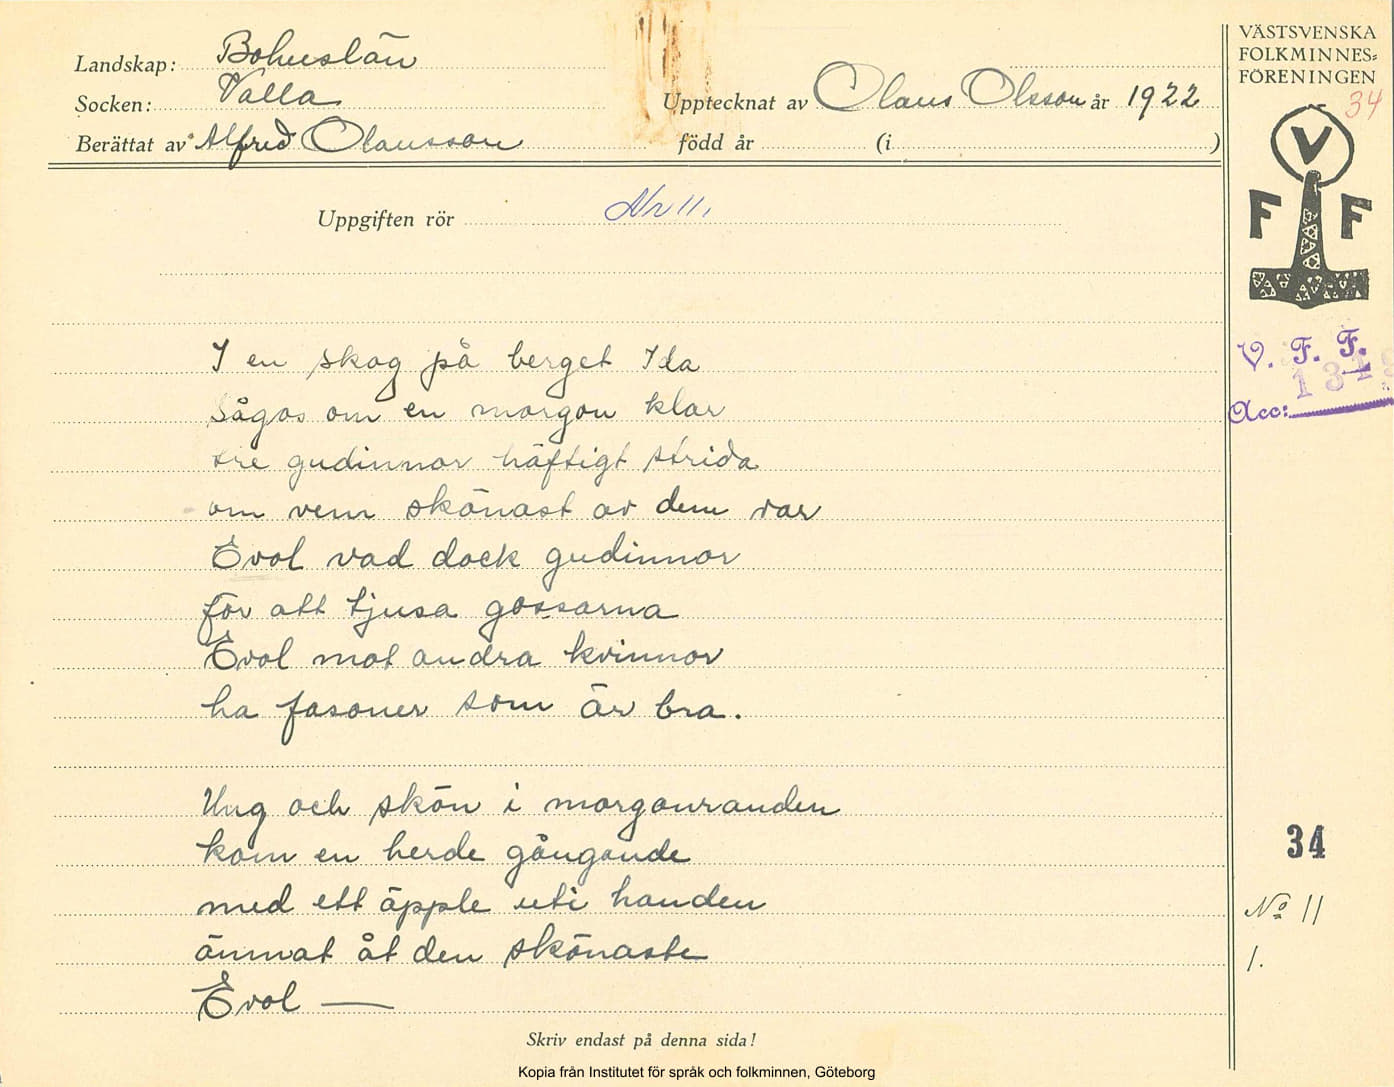 Landskap: Bohuslän
Socken: Valla
Berättat av Alfred Olausson
Upptecknat av Olaus Olsson år 1922
född år (i )
VÄSTSVENSKA
FOLKMINNES=
FÖRENINGEN
34
V
F F
V. F. F.
Acc:
Uppgiften rör Nr 11,
I en skog på berget Ida
sågos om en morgon klar
tre gudinnor häftigt strida
om vem skönast av dem var
Evol vad dock gudinnor
för att tjusa gossarna
Evol mot andra kvinnor
ha fasoner som är bra.
Ung och skön i morgonranden
kom en herde gångande
med ett äpple uti handen
ämnat åt den skönaste
Evol —
34
No 11
1.
Skriv endast på denna sida!
Kopia från Institutet för språk och folkminnen, Göteborg